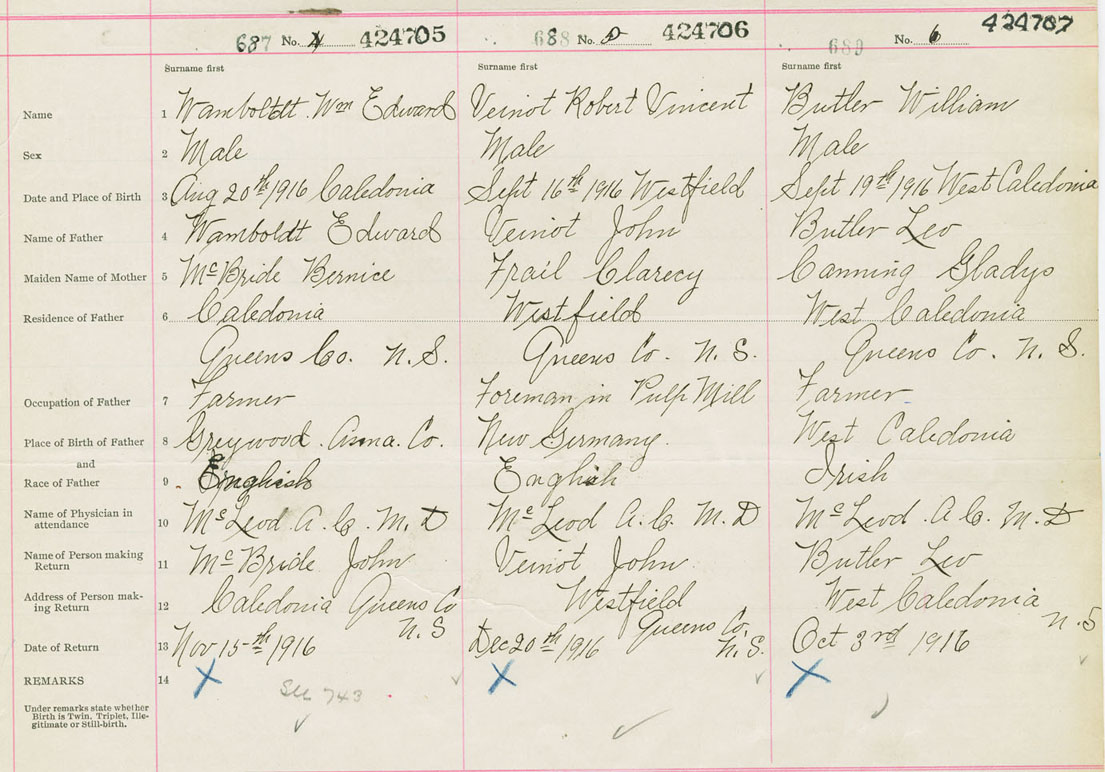 687 No. 4 424705 688 No. 5 424706 689 No. 6 424707
Surname first Surname first Surname first
Name 1 Wamboldt Wm Edward Veinot Robert Vincent Butler William
Sex 2 Male Male Male
Date and Place of Birth 3 Aug 20th 1916 Caledonia Sept 16th 1916 Westfield Sept 19th 1916 West Caledonia
Name of Father 4 Wamboldt Edward Veinot John Butler Leo
Maiden Name of Mother 5 McBride Bernice Frail Clarecy Canning Gladys
Residence of Father 6 Caledonia Westfield West Caledonia
Queens Co. N.S. Queens Co. N.S. Queens Co. N.S.
Occupation of Father 7 Farmer Foreman in Pulp Mill Farmer
Place of Birth of Father 8 Greywood. Anna. Co. New Germany. West Caledonia
and
Race of Father 9 English English Irish
Name of Physician in
attendance 10 McLeod A.C. M.D McLeod A.C. M.D McLeod. A.C. M.D
Name of Person making
Return 11 McBride John Veinot John Butler Leo
Address of Person mak-
ing Return 12 Caledonia Queens Co Westfield West Caledonia
N.S Queens Co. N.S. N.S
Date of Return 13 Nov 15th 1916 Dec 20th 1916 Oct 3rd 1916
REMARKS 14
See 743
Under remarks state whether
Birth is Twin, Triplet, Ille-
gitimate or Still-birth.